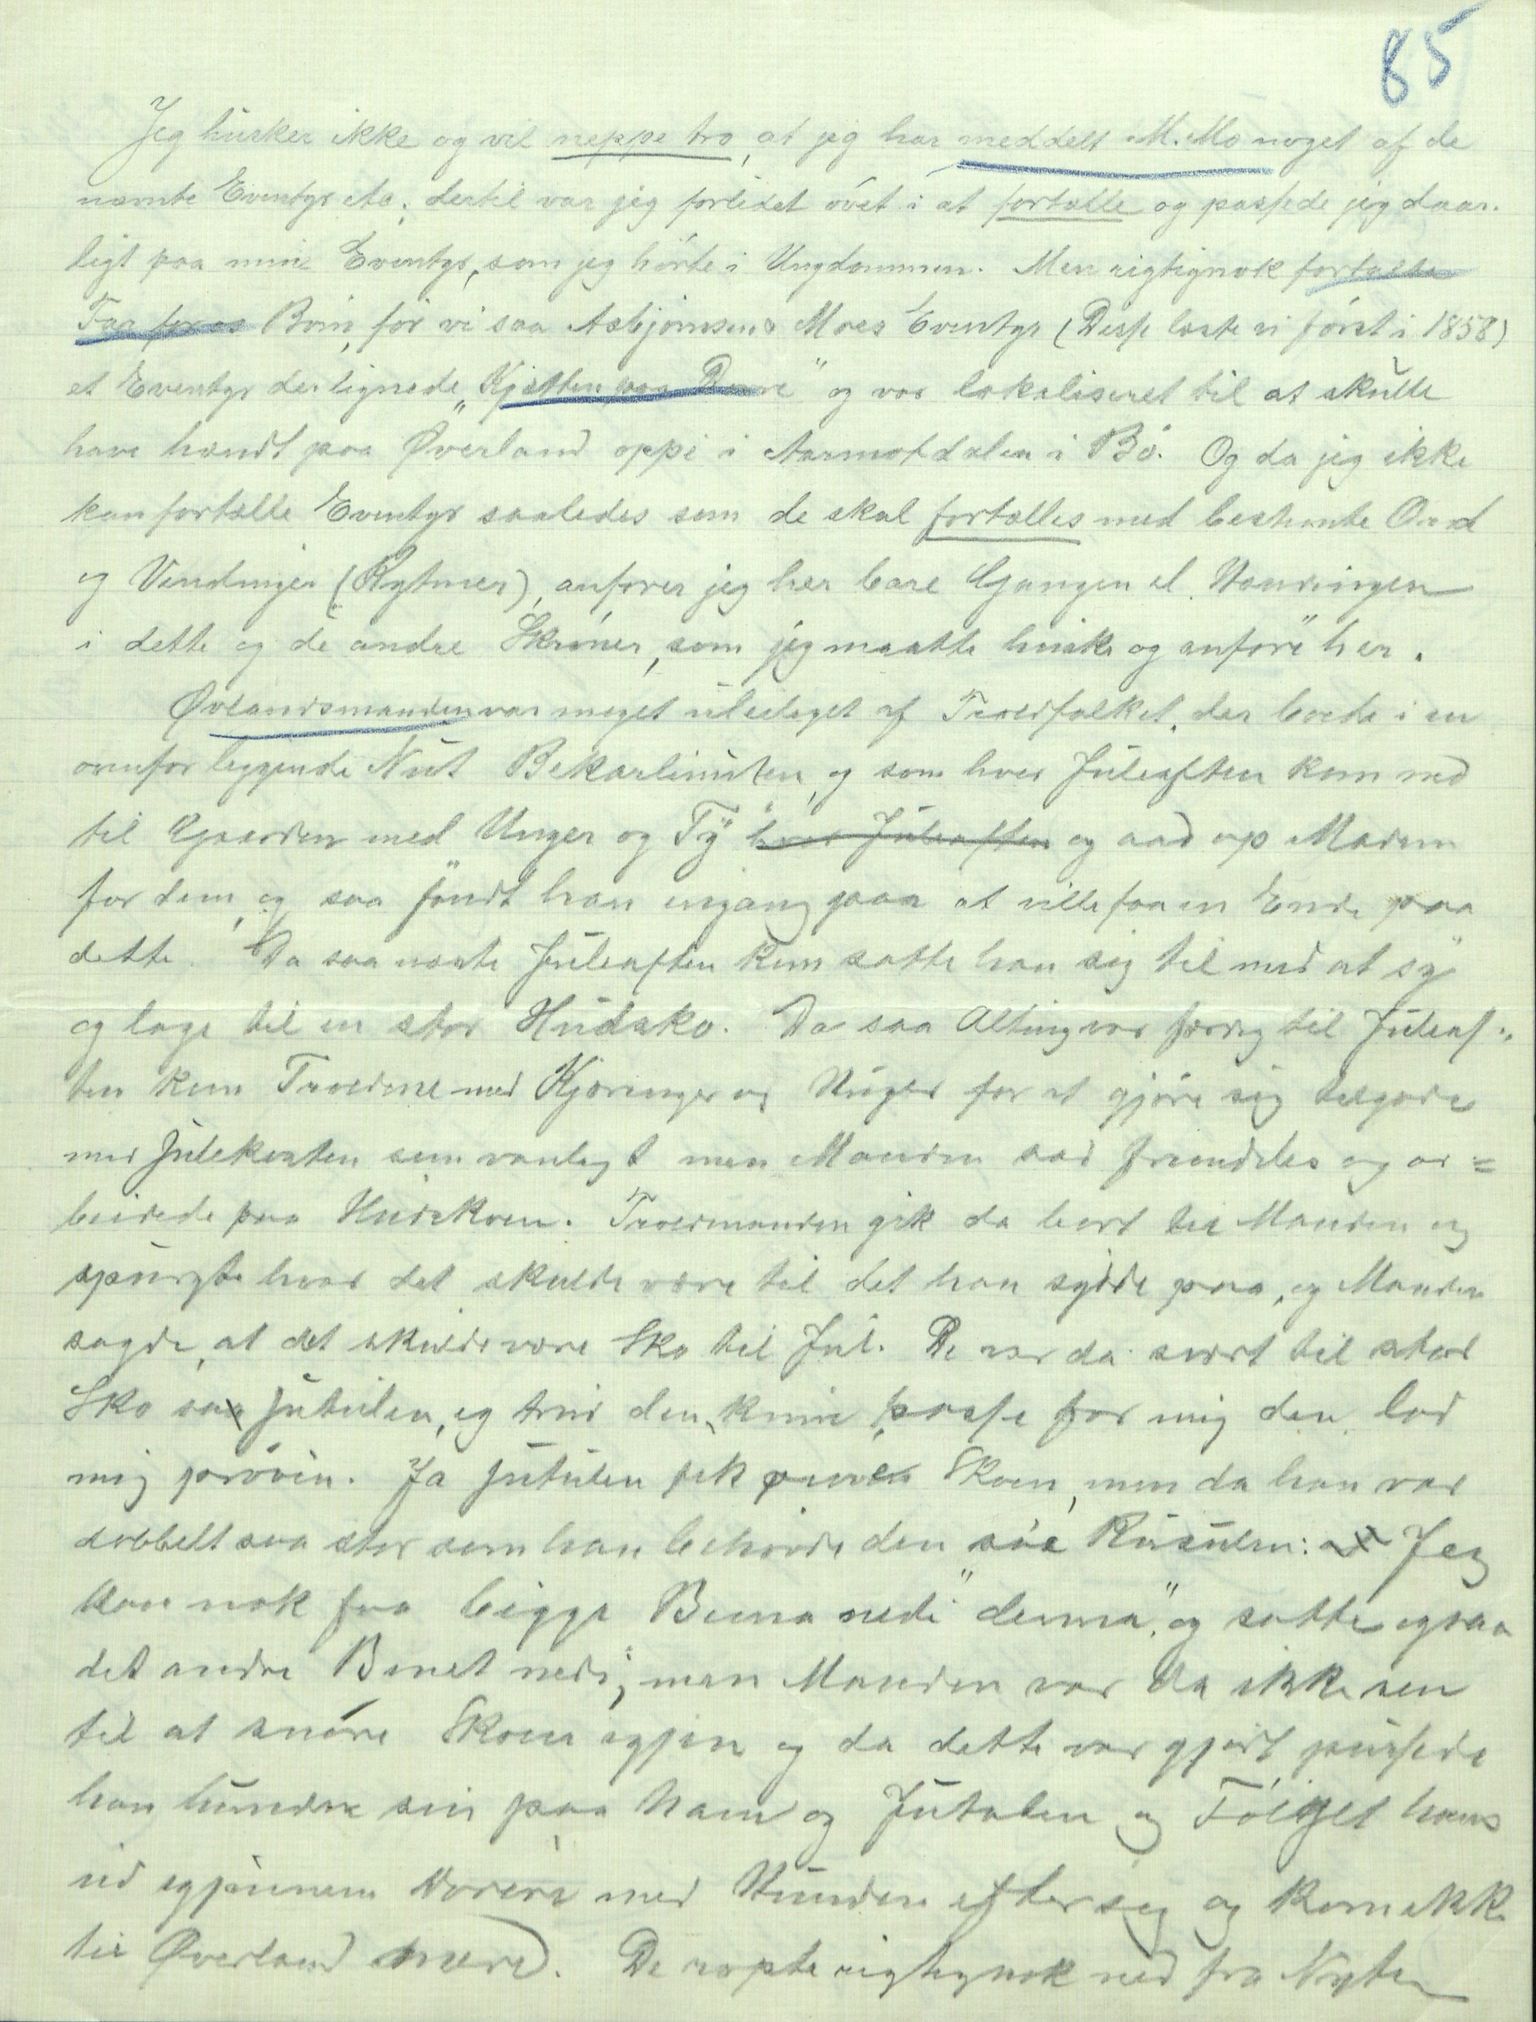 85
Jeg husker ikke og vil neppe tro, at jeg har meddelt M. Mo noget af de
nævnte Eventyr etc; dertil var jeg forlidet øvet i at fortælle og passede jeg daar-
ligt paa mine Eventyr, som jeg hørte i Ungdommen. Men rigtignok fortalte
Far for os Børn, før vi saa Asbjørnsen & Moes Eventyr (Disse læste vi først i 1858)
et Eventyr der lignede „Kjætten paa Dovre" og var lokaliseret til at skulle
have hændt paa Øverland oppe i Aarmotdalen i Bø. Og da jeg ikke
kan fortælle Eventyr saaledes som de skal fortælles med bestemte Ord
og Vendinger (Rytmer), anfører jeg her bare Gangen el. Handlingen
i dette og de andre Skrøner, som jeg maatte huske og anføre her.
Øvlandsmanden var meget uleileget af Troldfolket, der boede i en
ovenfor liggende Nut og som hver Juleaften kom ned
til Gaarden med Unger og Ty hver Juleaften og aad op Maden
for dem, og saa fandt han engang paa at ville faa en Ende paa
dette. Da saa næste Juleaften kom satte han sig til med at sy
og lage til en stor Hudsko. Da saa Alting var færdig til Juleaf-
ten kom Troldene med Kjæringer og Unger for at gjøre sig tilgode
med Julekosten som vanlegt men Manden sad fremdeles og ar=
beidede paa Hudskoen. Troldmanden gik da bort til Manden og
spurgte hvad det skulde være til det han sydde paa, og Manden
sagde, at det skulde være Sko til Jul. De var da svært til stor
Sko sa Jutulen, og trur den kune passe for mig den, lad
mig prøven. Ja Jutulen fik prøve Skoen, men da han var
dobbelt saa stor som han behøvde den sae: Jeg
kan nok faa begge Beina nedi denna", og satte ogsaa
det andre Benet nedi, men Manden var da ikke sen
til at snøre Skoen igjen og da dette var gjort pussede
han Hundene sin paa ham og Jutulen og Følget hans
ud igjennem Døren med Hunden efter sig og kom ikke
til Øverland mere. De ropte rigtignok ned fra Nuten